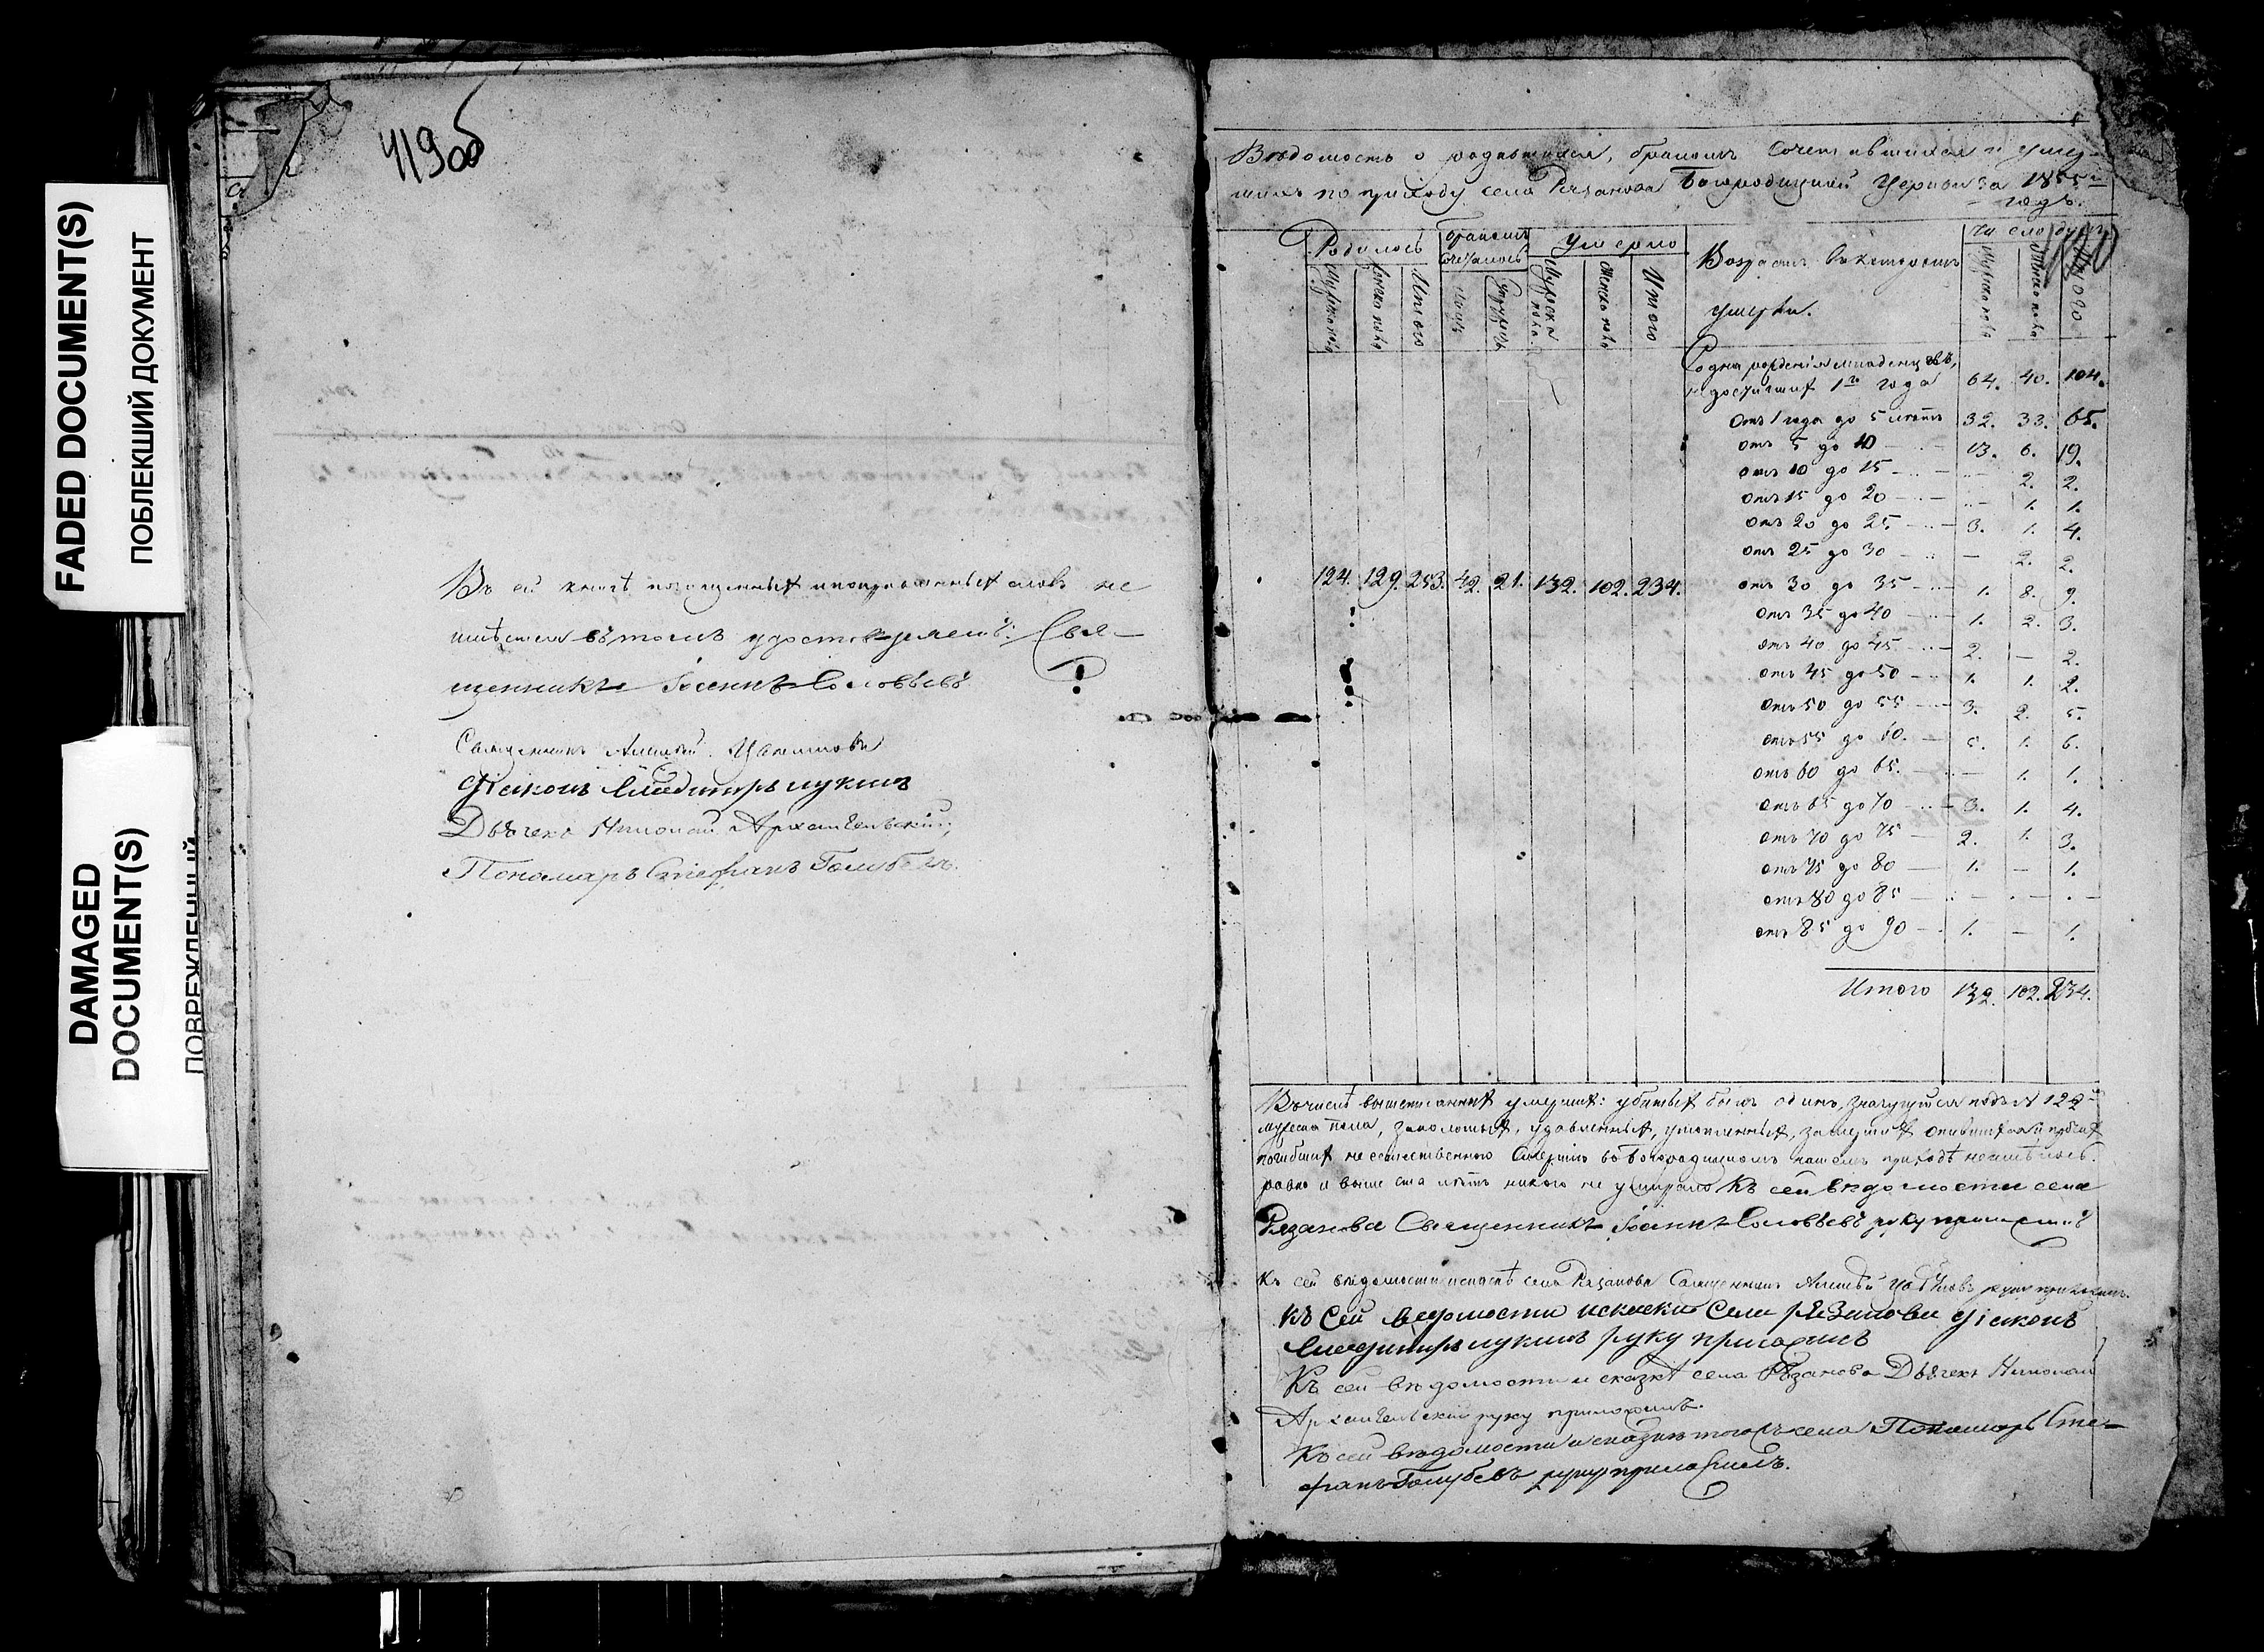 FADED DOCUMENT(S)
ПОБЛЕКШИЙ ДОКУМЕНТ
DAMAGED
DOCUMENT(S)
ПОВРЕЖДЕННЫЙ
419об
Въ сей книгѣ почищенныхъ и поправленныхъ словъ не
имѣется въ томъ удостовѣряемъ: Свя-
щенникъ Іоаннъ Соловьевъ
Священникъ Алексѣй
Діаконъ Владимиръ Лукинъ
Дьячекъ Николай Архангельскій,
Пономарь Стефанъ Голубевъ.
Вѣдомость о родившихся, бракомъ сочетавшихся и умер-
шихъ по приходу села Рязанова Богородицкой Церкви за 1855й
годъ.
420
Родилось Бракомъ сочеталось Умерло Возрастъ въ которомъ умерли. Число душъ
Мужска пола Женска пола Итого Мужска пола Женска пола Итого Мужска пола Женска пола Итого
Со дня рожденія младенцевъ,
не достигшихъ 1го года 64. 40. 104.
Отъ 1 года до 5 лѣтъ 32. 33. 65.
отъ 5 до 10 13. 6. 19.
отъ 10 до 15 — 2. 2.
отъ 15 до 20 — 1. 1.
отъ 20 до 25 3. 1. 4.
отъ 25 до 30 — 2. 2.
124. 129. 253. 42. 21. 132. 102. 234. отъ 30 до 35 1. 8. 9.
отъ 35 до 40 1. 2. 3.
отъ 40 до 45 2. — 2.
отъ 45 до 50 1. 1. 2.
отъ 50 до 55 3. 2. 5.
отъ 55 до 60. 5. 1. 6.
отъ 60 до 65. — 1. 1.
отъ 65 до 70 3. 1. 4.
отъ 70 до 75 2. 1. 3.
отъ 75 до 80 1. — 1.
отъ 80 до 85 — — —
отъ 85 до 90 1. — 1.
Итого 132. 102. 234.
Въ числѣ вышеписанныхъ умершихъ: убитыхъ былъ одинъ, значущійся подъ № 122
мужска пола, заколотыхъ, удавленныхъ, утопленныхъ, опившихся и
погибшихъ не естественною смертію въ Богородицкомъ нашемъ приходѣ не имѣлось.
равно и выше ста лѣтъ никого не умирало Къ сей вѣдомости села
Рязанова Священникъ Іоаннъ Соловьевъ руку приложилъ
Къ сей вѣдомости и сказкѣ села Рязанова Священникъ Алексѣй руку приложилъ.
Къ сей ведомости и скаски села Рязанова Діаконъ
Владимиръ Лукинъ руку приложилъ
Къ сей вѣдомости и сказкѣ села Рязанова Дьячекъ Николай
Архангельскій руку приложилъ.
Къ сей вѣдомости и сказкѣ тогожъ села Пономарь Сте-
фанъ Голубевъ руку приложилъ.